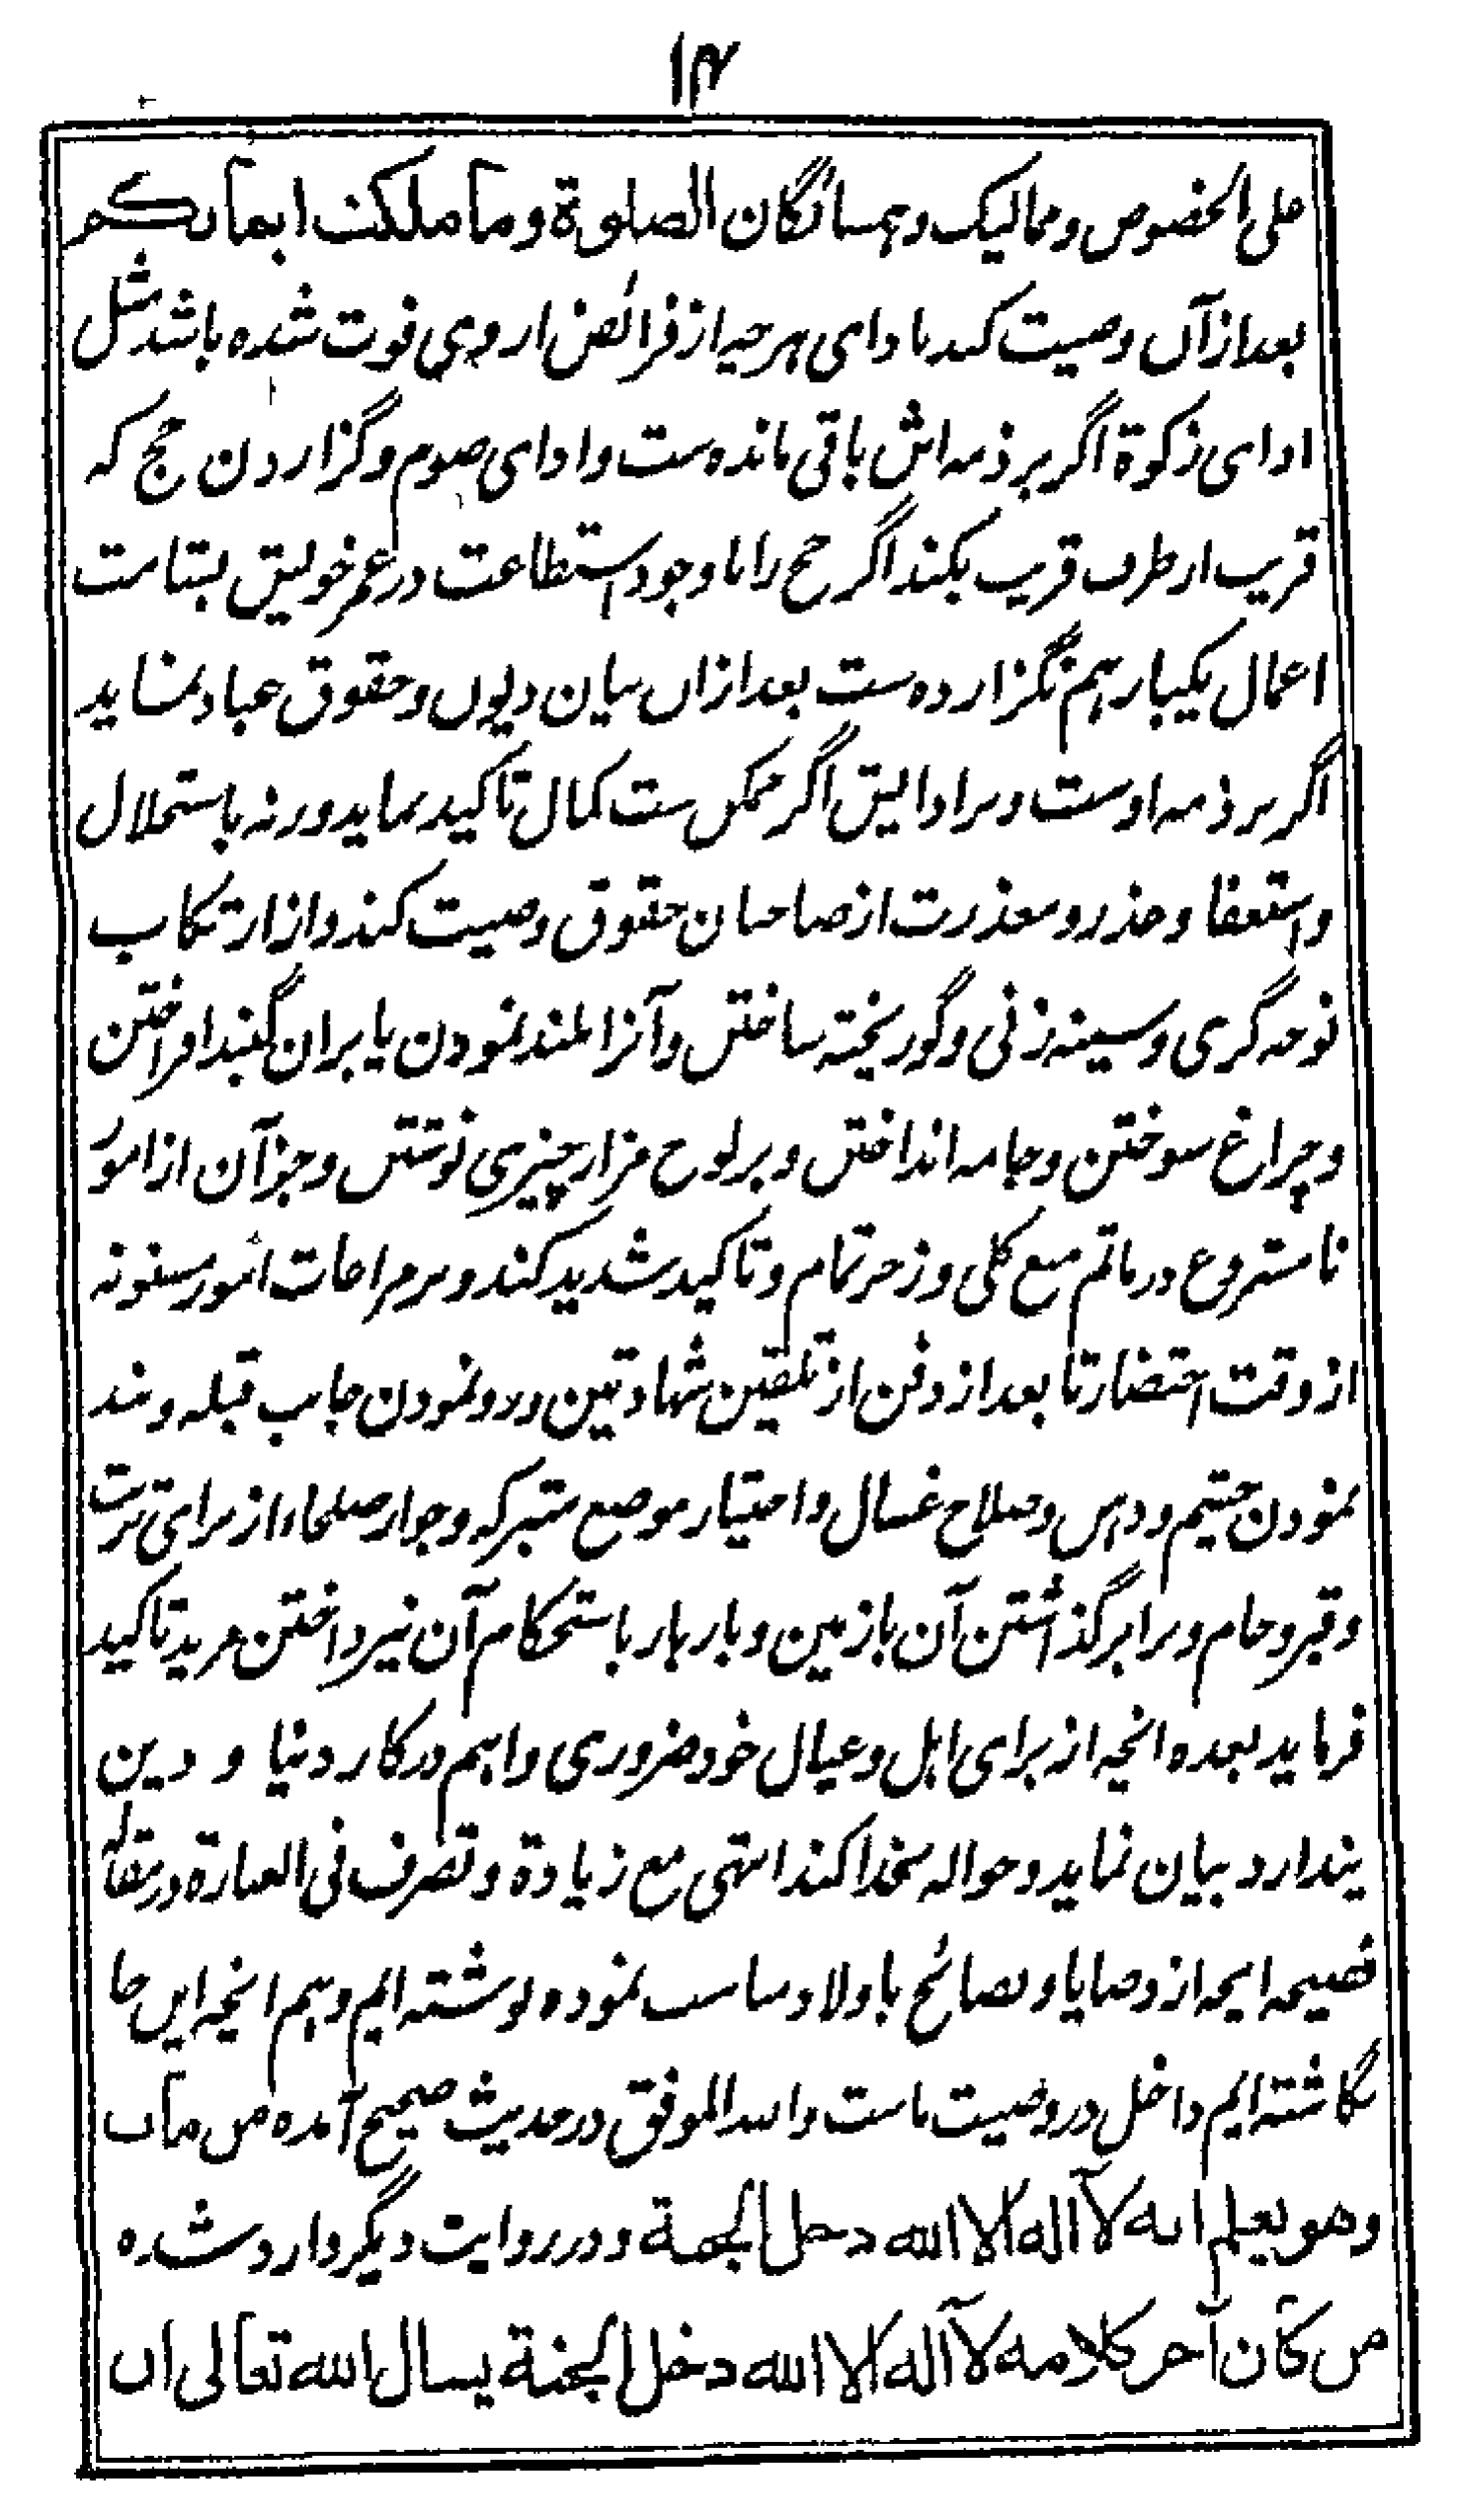 ۱۴
علی الخصوص و ممالیک و همسائگان الصلوة وما ملکت ایمانکم
بعد از آن وصیت کند بادای هرچه از فرائض از وی فوت شده باشد مثل
ادای زکوة اگر بر ذمه اش باقی مانده ست و ادای صوم و گزاردن حج که
قریب از طرف قریب بکند اگر حج را با وجود استطاعت در عمر خویش بشامت
اعمال یکبار هم نگزارده ست بعد ازان بیان دیون و حقوق عباد نماید
اگر بر ذمه اوست و بر ادایش اگر ممکن ست کمال تاکید نماید ورنه باستحلال
و استعفا و عذر و معذرت از صاحبان حقوق وصیت کند و از ارتکاب
نوحه گری و سینه زنی و گور پخته ساختن و آنرا بلند نمودن یا بران گنبد افراختن
و چراغ سوختن و جامه انداختن و بر لوح مزار چیزی نوشتن و جز آن از امور
نامشروع در ماتم منع کلی و زجر تمام و تاکید شدید کند و بر مراعات امور مسنونه
از وقت احتضار تا بعد از دفن از تلقین شهادتین و رو نمودن جانب قبله و بند
نمودن چشم و دهن و صلاح غسال و اختیار موضع متبرکه و جوار صلحاء از برای تربت
و قبر و خام و برابر گذاشتن آن با زمین و بار بار باستحکام آن نپرداختن مزید تاکید
فرماید بعده انچه از برای اهل و عیال خود ضروری و اهم در کار دنیا و دین
پندارد بیان نماید و حواله بخدا کند انتهی مع زیادة و تصرف فی العبارة در مقالهٔ
فصیحه انچه از وصایا و نصائح باولاد مناسب نموده نوشته ایم و هم انچه این جا
نگاشته ایم داخل در وصیت ماست والله الموفق در حدیث صحیح آمده من مات
وهو یعلم انه لا اله الا الله دخل الجنة و در روایت دیگر وارد شده
من کان آخر کلامه لا اله الا الله دخل الجنة یسال الله تعالی ان